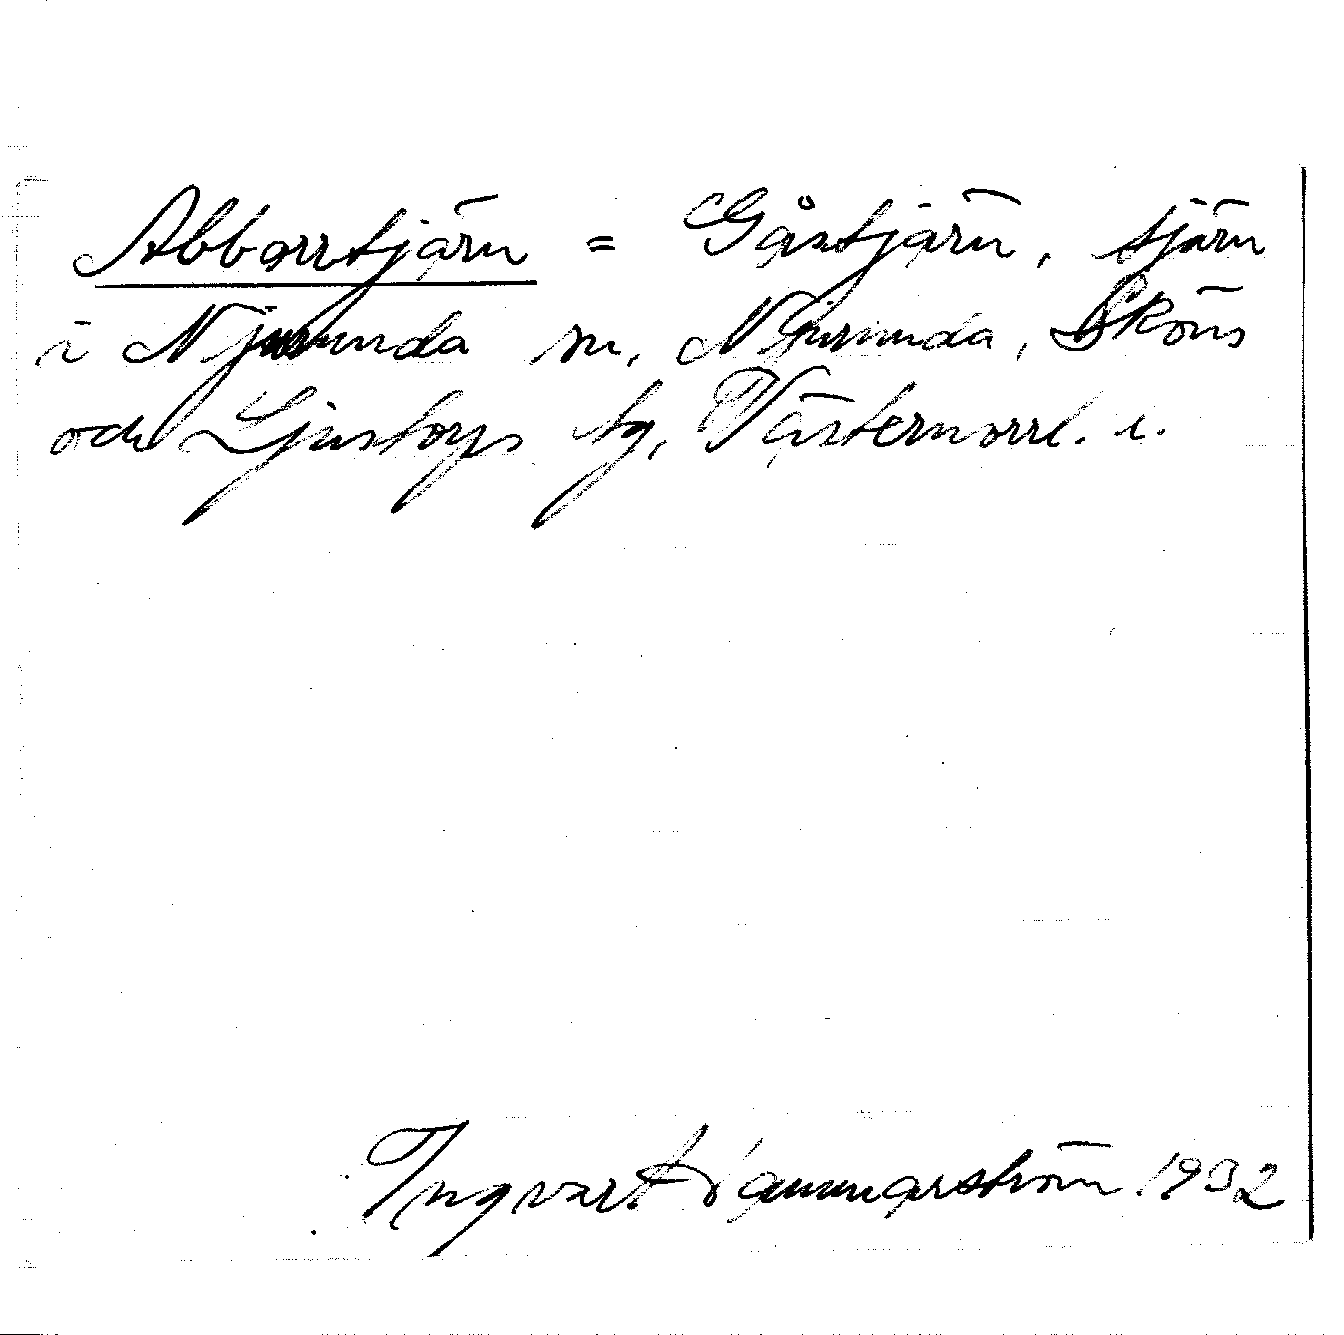 Abborrtjärn = Gåstjärn, tjärn
i Njurunda sn, Njurunda, Sköns
och Ljustorps tg, Västernorrl. l.
Ingvart 1932